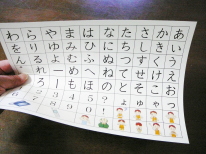 あいうえおっ
かきくけこゃ
さしすせそゅ
たちつてとょ
なにぬねの?
はひふへほ
まみむめも
やゆよ
らりるれろ
わをん